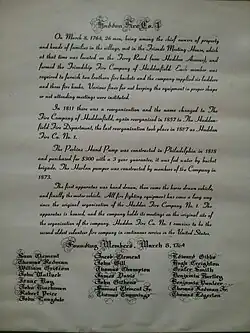 Haddon Fire Co. 1
On March 8, 1764, 26 men, being among the chief owners of property
and heads of families in the villages, met in the Friends Meeting House, which
at that time was located on the Ferry Road from Haddon Avenue, and
formed the Friendship Fire Company of Haddonfield. Each member was
required to furnish two leathern fire buckets and the company supplied six ladders
and three fire hooks. Various fines for not keeping the equipment in proper shape
or not attending meetings were instituted.
In 1811 there was a reorganization and the name changed to The
Fire Company of Haddonfield, again reorganized in 1857 to The Haddon-
field Fire Department, the last reorganization took place in 1887 as Haddon
Fire Co. No. 1.
The Perkins Hand Pump was constructed in Philadelphia in 1818
and purchased for $300 with a 3 year guarantee, it was fed water by bucket
brigade. The Harlem pumper was constructed by members of the Company in
1873.
The first apparatus was hand drawn, then came the horse drawn vehicle,
and finally the motor vehicle. All fire fighting equipment was once a long way
since the original organization of the Haddon Fire Company No. 1. The
apparatus is housed, and the company holds its meetings on the original site of
the organization of the company. Haddon Fire Company No. 1 to be the
second oldest volunteer fire company in continuous service in the United States.
Founding Members, March 8, 1764
Sam Clement Jacob Clement Edward Gibbs
Thomas Redman John Gill John Creighton
William Griscom Thomas Champion
John Matlack James Davis Benjamin Hartley
Isaac Kay John Githens
Robert Price
John Langdale Thomas Edgerton